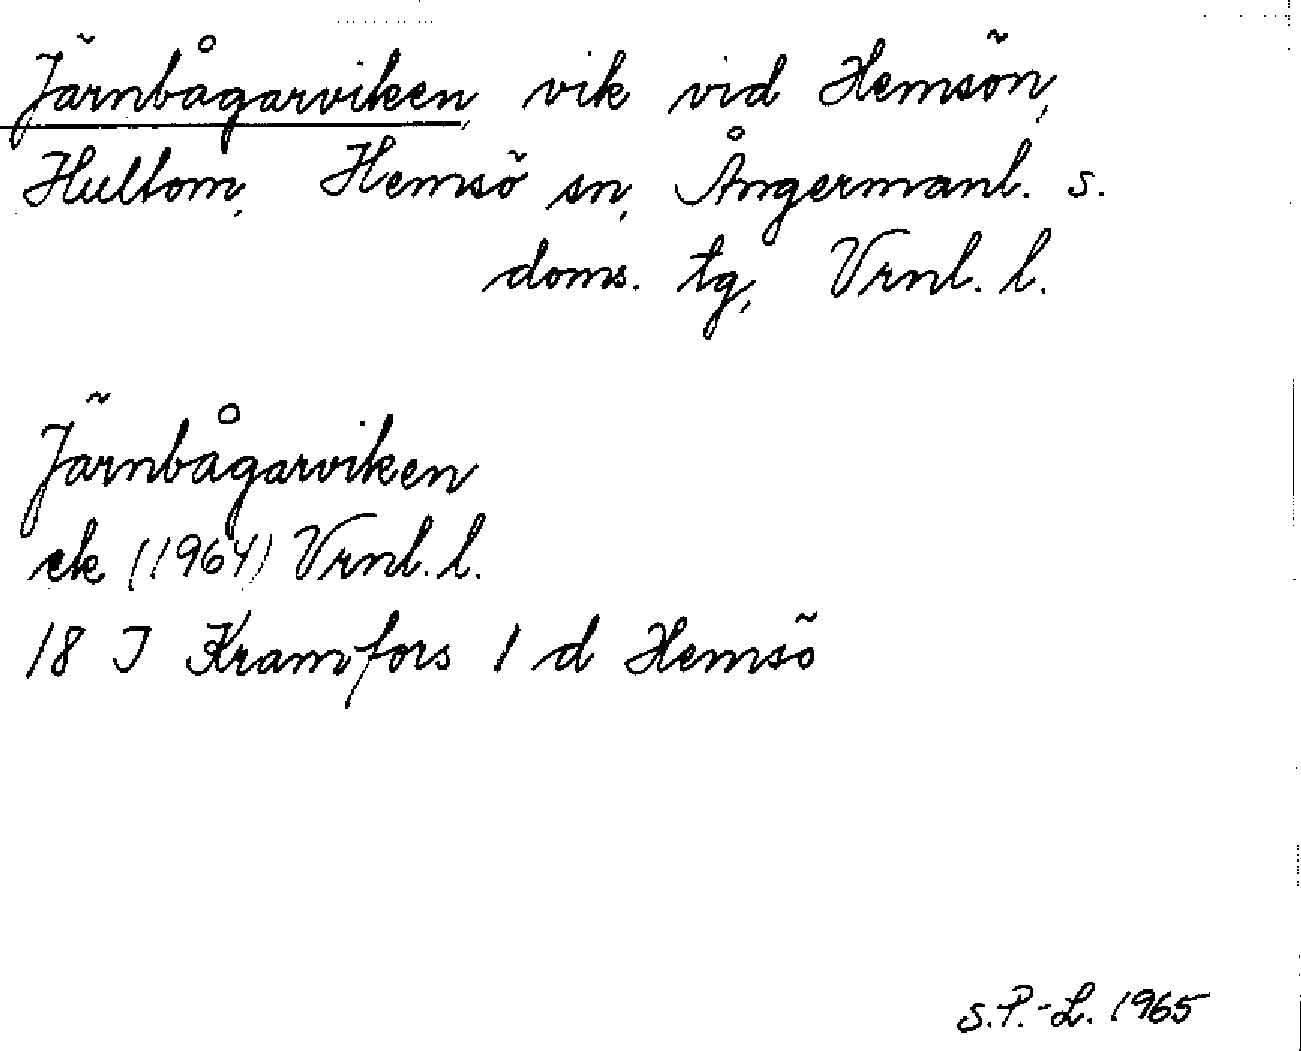 Järnbågarviken, vik vid Hemsön,
Hultom, Hemsö sn, Ångermanl. s.
doms. tg, Vrnl. l.
Järnbågarviken
ek (1964) Vrnl. l.
18 J Kramfors 1 d Hemsö
S.P.-L. 1965